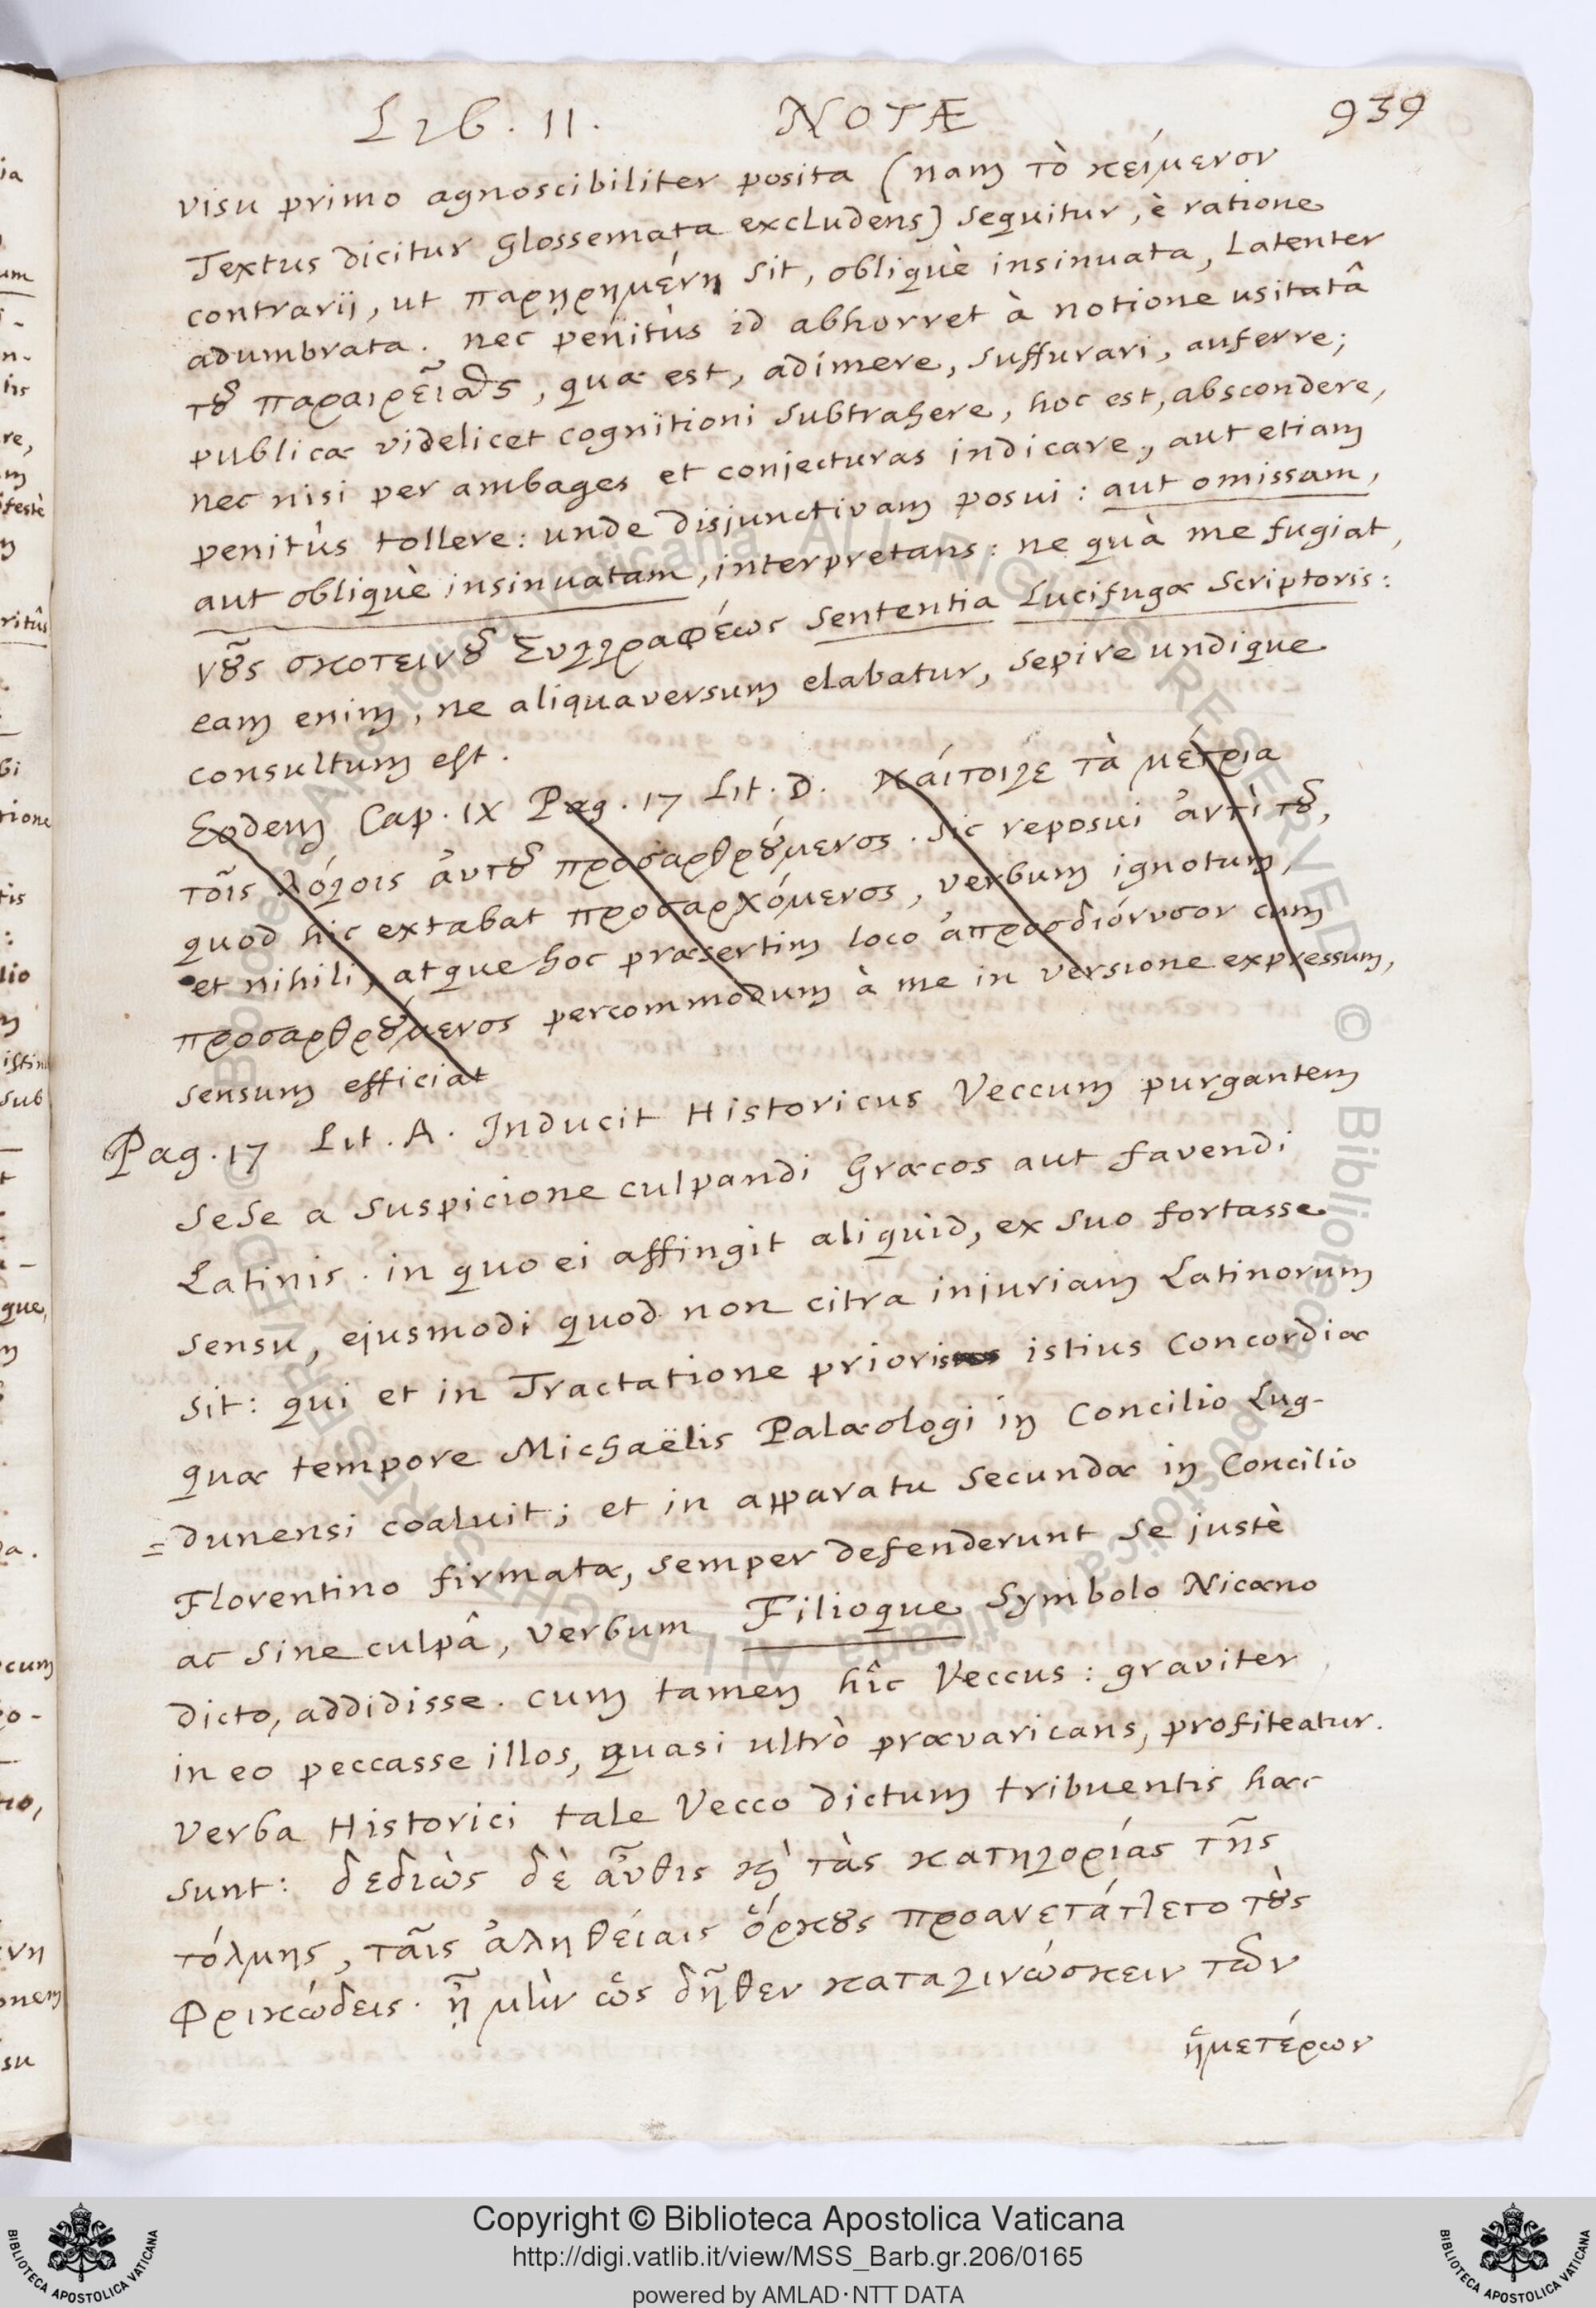 Lib. II. NOTÆ 939
visu primo agnoscibiliter posita (nam τὸ κείμενον
Textus dicitur Glossemata excludens) sequitur, è ratione
contrarij, ut παρῃρημένη sit, obliquè insinuata, Latenter
adumbrata. nec penitùs id abhorret à notione usitatâ
τȣ͂ παραιρεῖσθαι, quæ est, adimere, suffurari, auferre;
publicæ videlicet cognitioni subtrahere, hoc est, abscondere,
nec nisi per ambages et conjecturas indicare, aut etiam
penitùs tollere: unde disjunctivam posui: aut omissam,
aut obliquè insinuatam, interpretans: ne quà me fugiat,
νȣ͂ς σκοτεινȣ͂ Συγγραφέως sententia Lucifugæ Scriptoris:
eam enim, ne aliquaversum elabatur, sepire undique
consultum est.
Eodem Cap. IX Pag. 17 Lit. D. κάιτοιγε τὰ μέτρια
τοῖς λόγοις ἀυτȣ͂ προσαρθρȣ́μενος. sic reposui ἀντὶ τȣ͂,
quod hîc extabat προσαρχόμενος, verbum ignotum,
et nihili, atque hoc præsertim loco ἀπροσδιόνυσον cum
προσαρθρȣ́μενος percommodum à me in versione expressum,
sensum efficiat
Pag. 17 Lit. A. Inducit Historicus Veccum purgantem
sese a suspicione culpandi Græcos aut favendi
Latinis. in quo ei affingit aliquid, ex suo fortasse
sensu, ejusmodi quod non citra injuriam Latinorum
sit: qui et in Tractatione prioris istius Concordiæ
quæ tempore Michaëlis Palæologi in Concilio Lug-
=dunensi coaluit; et in apparatu secundæ in Concilio
Florentino firmatæ, semper defenderunt se justè
ac sine culpâ, verbum Filioque Symbolo Nicæno
dicto, addidisse. cum tamen hîc Veccus: graviter
in eo peccasse illos, quasi ultrò prævaricans, profiteatur.
Verba Historici tale Vecco dictum tribuentis hæc
sunt: δεδιὼς δὲ ἆυθις ϗ̀ τὰς κατηγορίας τῆς
τόλμης, τᾶις ἀληθείαις ὅρκȣς προανετάττετο τȣ̀ς
φρικώδεις. ἦ μὴν ὡς δῆθεν καταγινώσκειν τῶν
ἡμετέρων
Copyright © Biblioteca Apostolica Vaticana
http://digi.vatlib.it/view/MSS_Barb.gr.206/0165
powered by AMLAD·NTT DATA